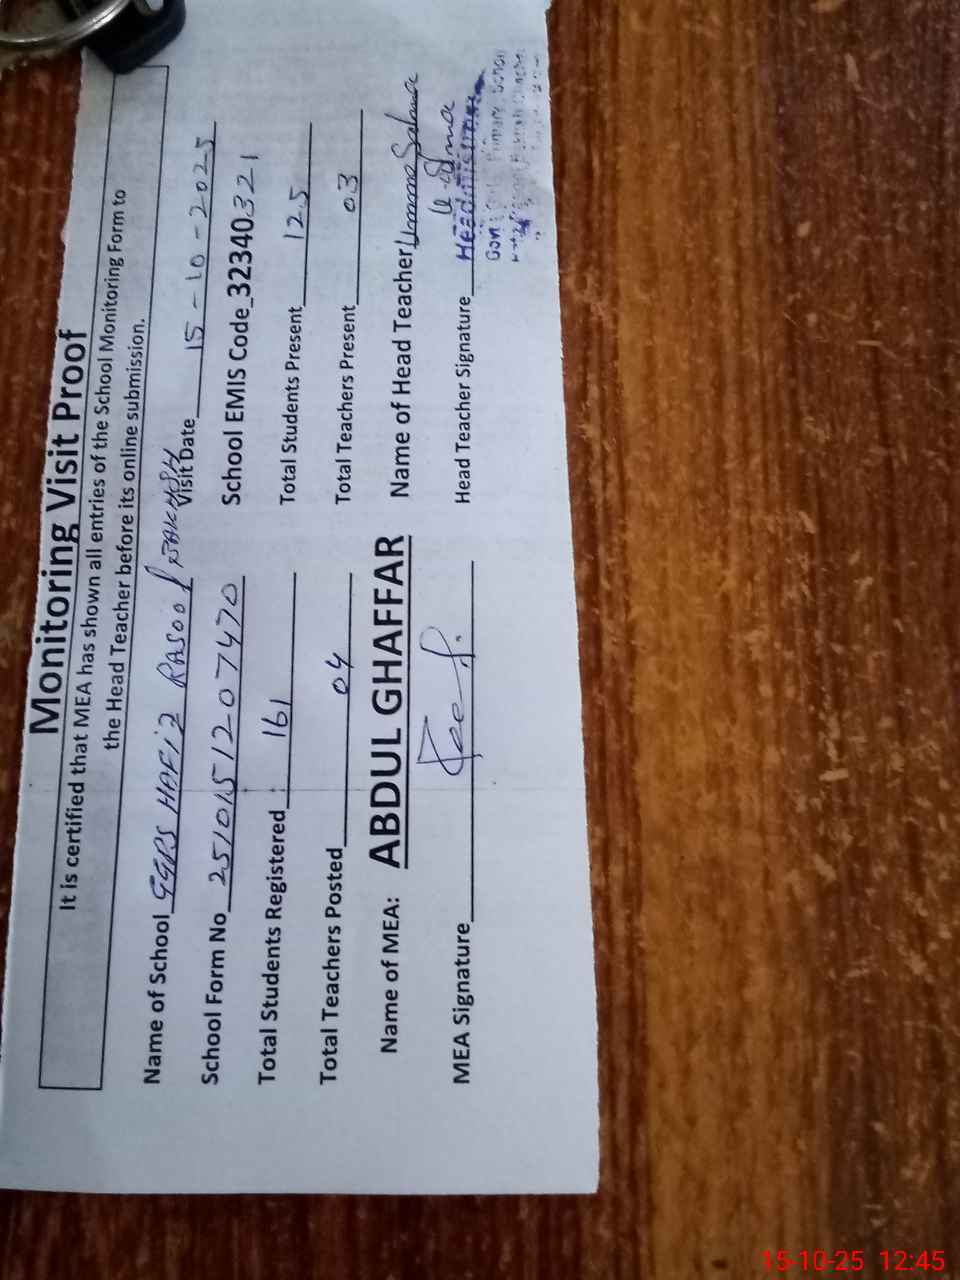 Monitoring Visit Proof
It is certified that MEA has shown all entries of the School Monitoring Form to
the Head Teacher before its online submission.
Name of School GGPS HAFIZ RASOOL BAKHSH Visit Date 15-10-2025
School Form No 2510151207470 School EMIS Code 32340321
Total Students Registered 161 Total Students Present 125
Total Teachers Posted 04 Total Teachers Present 03
Name of MEA: ABDUL GHAFFAR Name of Head Teacher Umme Salma
MEA Signature Head Teacher Signature
Headmistress
Primary School
15-10-25 12:45